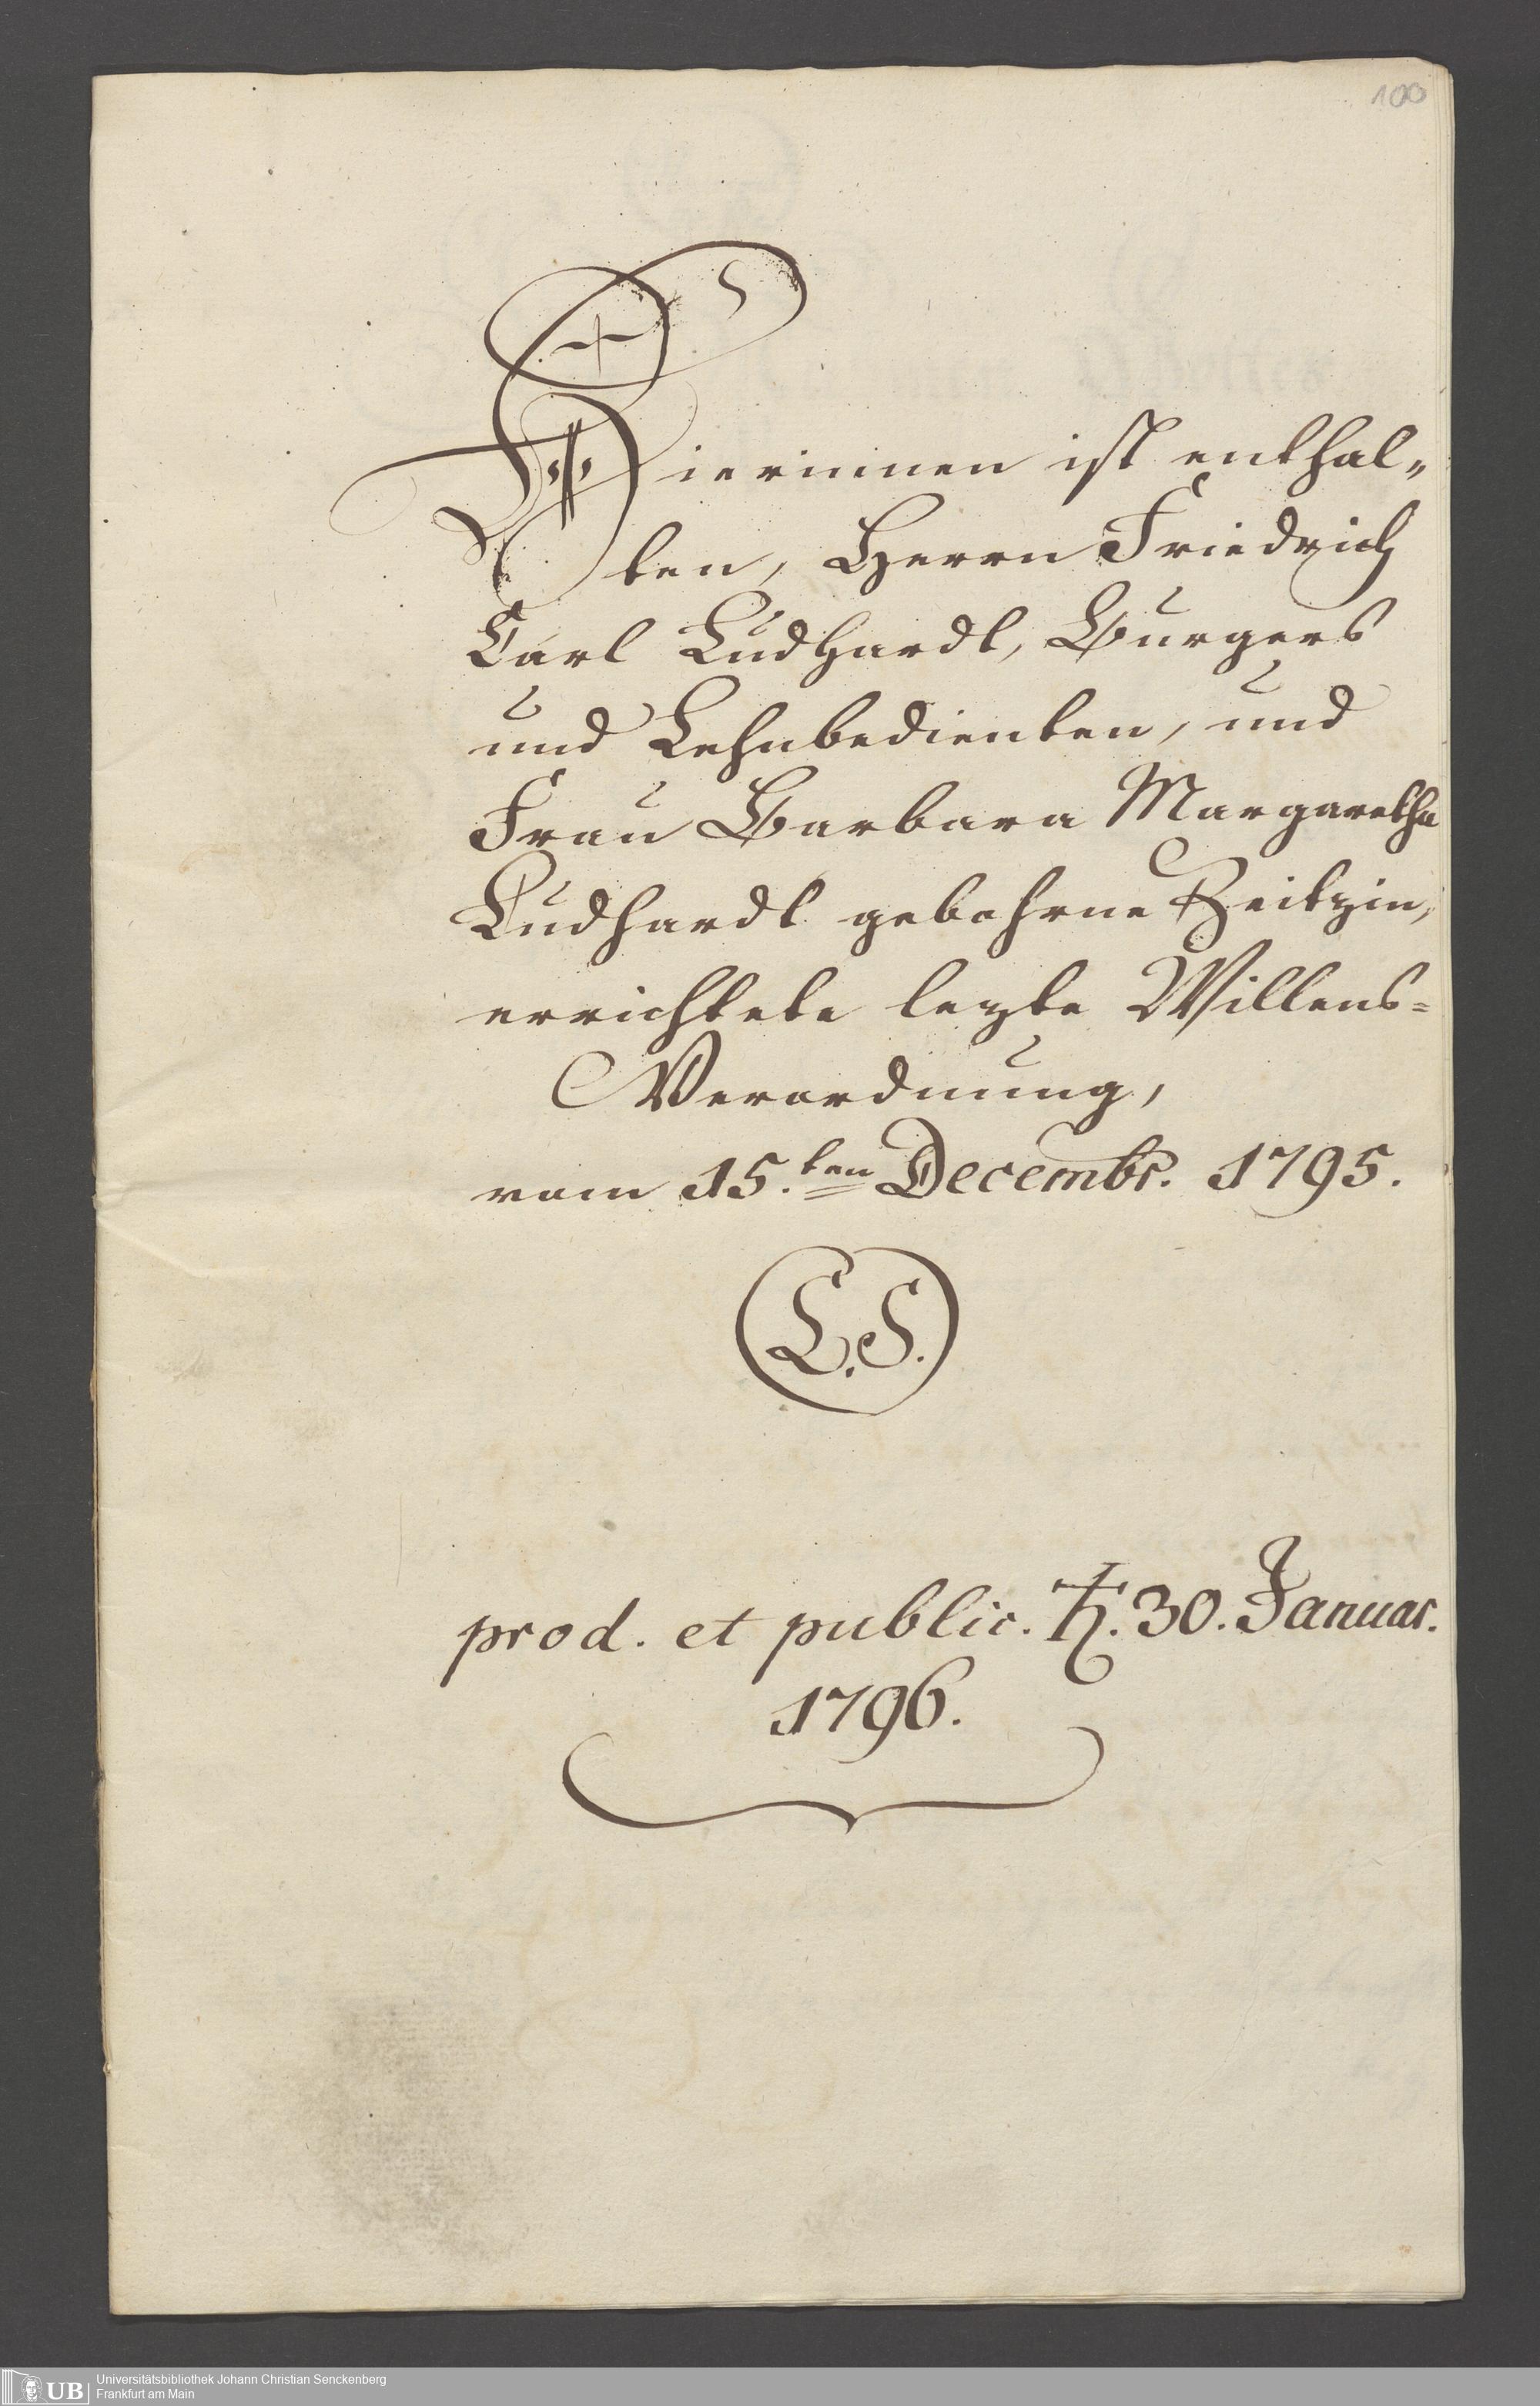 100
Hierinnen ist enthal„
ten, Herrn Friedrich
Carl Ludhardt, Burgers
und Lehnbedienten, und
Frau Barbara Margaretha
Ludhardt gebohrne Zeitzin,
errichtete lezte Willens=
Verordnung,
vom 15.ten Decembr. 1795.
L.S.
prod. et public. ♄. 30. Januar.
1796.
UB
Universitätsbibliothek Johann Christian Senckenberg
Frankfurt am Main